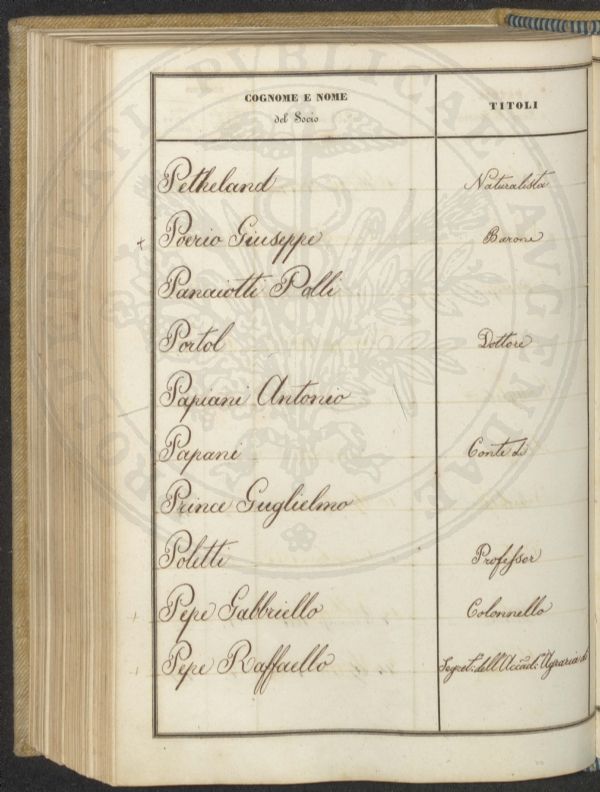 PROSPERITATI PUBLICAE AUGENDAE
COGNOME E NOME
del Socio
TITOLI
Petheland Naturalista
+ Poerio Giuseppe Barone
Panaiotti Palli
Portol Dottore
Papiani Antonio
Papani Conte di
Prince Guglielmo
Poletti Professor
Pepe Gabbriello Colonnello
Pepe Raffaello Segret. dell'Accad. Agraria di